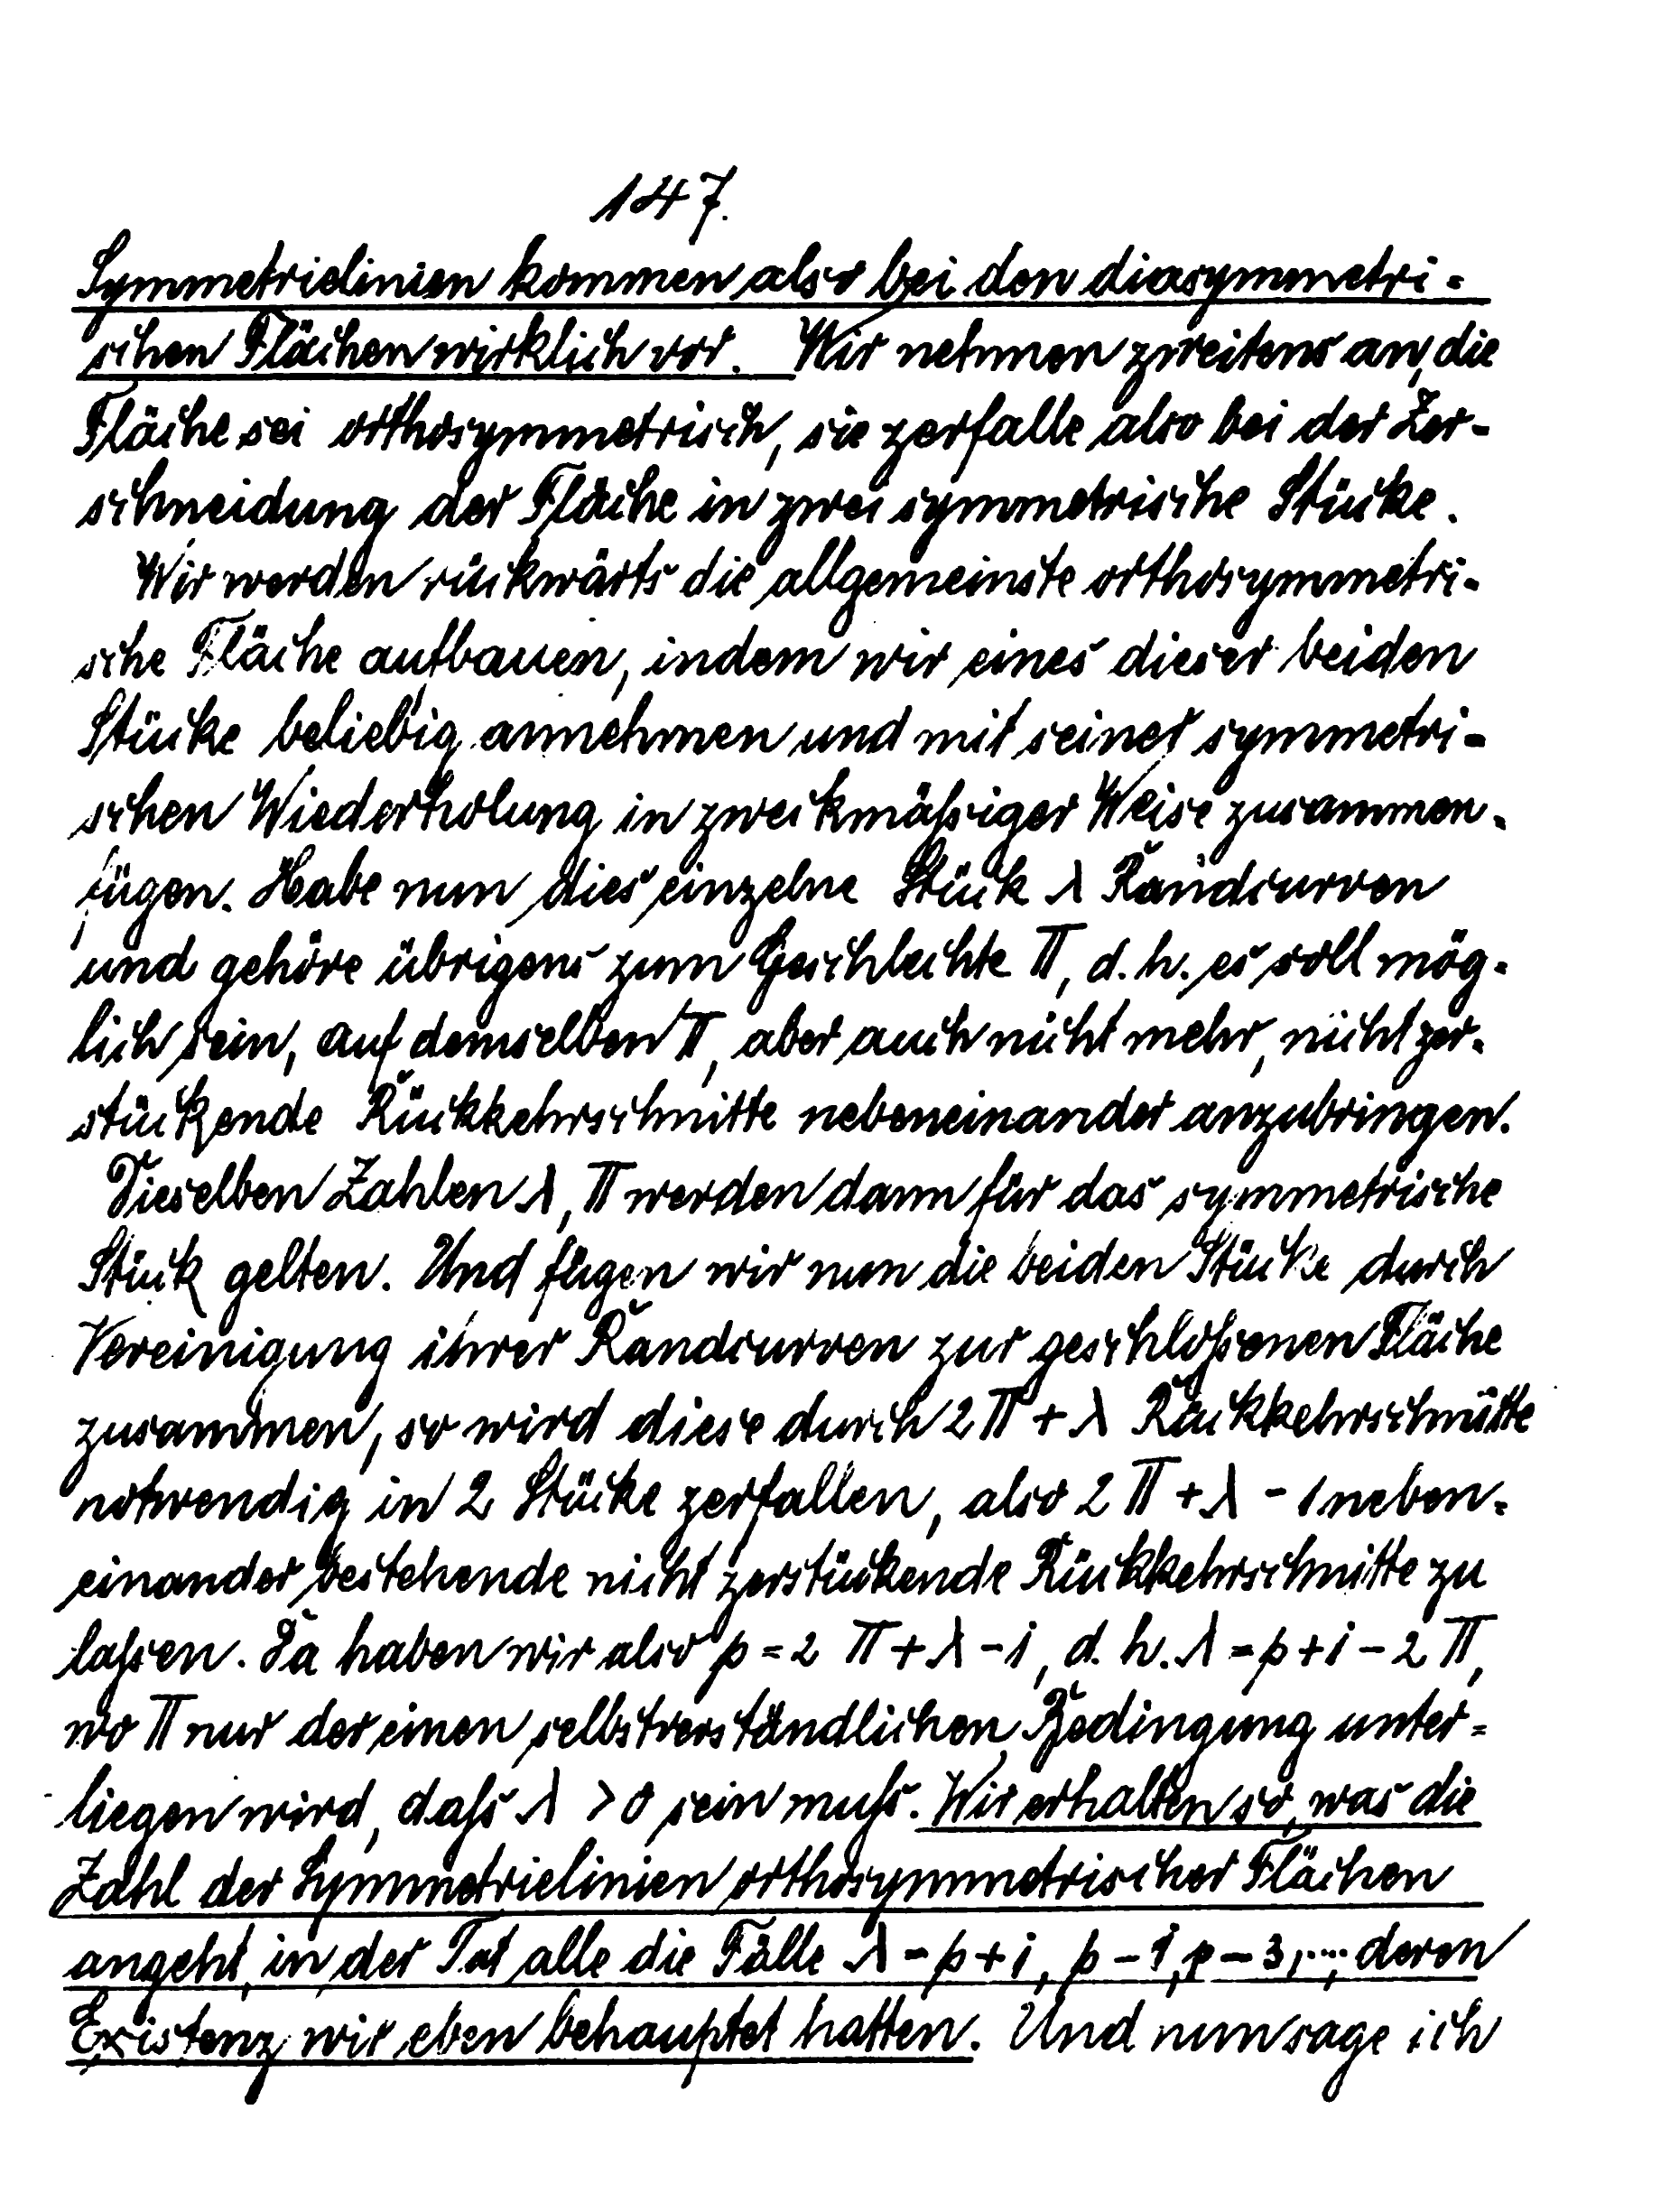 147.
Symmetrielinien kommen also bei den diasymmetri-
schen Flächen wirklich vor. Wir nehmen zweitens an, die
Fläche sei orthosymmetrisch, sie zerfalle also bei der Zer-
schneidung der Fläche in zwei symmetrische Stücke.
Wir werden rückwärts die allgemeinste orthosymmetri-
sche Fläche aufbauen, indem wir eines dieser beiden
Stücke beliebig annehmen und mit seiner symmetri-
schen Wiederholung in zweckmäßiger Weise zusammen-
fügen. Habe nun dies einzelne Stück λ Randcurven
und gehöre übrigens zum Geschlechte π, d. h. es soll mög-
lich sein, auf demselben π, aber auch nicht mehr, nicht zer-
stückende Rückkehrschnitte nebeneinander anzubringen.
Dieselben Zahlen λ, π werden dann für das symmetrische
Stück gelten. Und fügen wir nun die beiden Stücke durch
Vereinigung ihrer Randcurven zur geschloßenen Fläche
zusammen, so wird diese durch 2π + λ Rückkehrschnitte
notwendig in 2 Stücke zerfallen, also 2π + λ - 1 neben-
einander bestehende nicht zerstückende Rückkehrschnitte zu
laßen. Da haben wir also p = 2π + λ - 1, d. h. λ = p + 1 - 2π,
wo π nur der einen selbstverständlichen Bedingung unter-
liegen wird, daß λ > 0 sein muß. Wir erhalten so, was die
Zahl der Symmetrielinien orthosymmetrischer Flächen
angeht, in der Tat alle die Fälle λ = p + 1, p - 1, p - 3, ..., deren
Existenz wir eben behauptet hatten. Und nun sage ich